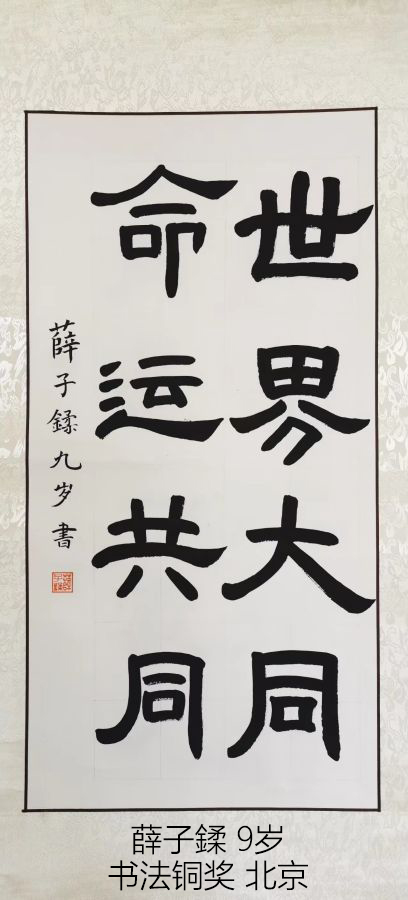 世界大同
命运共同
薛子鍒九岁書
薛子鍒 9岁
书法铜奖 北京